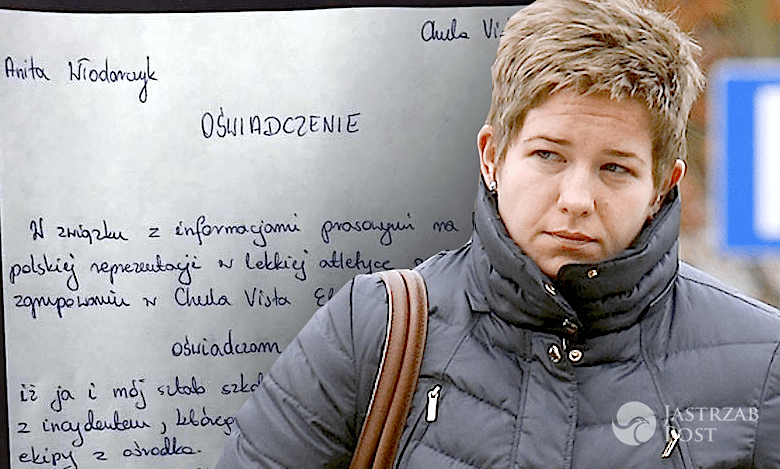 Chula
Anita Włodarczyk
OŚWIADCZENIE
W związku z informacjami prasowymi na
polskiej reprezentacji w lekkiej atletyce
zgrupowaniu w Chula Vista
oświadczam
iż ja i mój sztab
z incydentem,
ekipy z ośrodka.
JASTRZĄB
POST